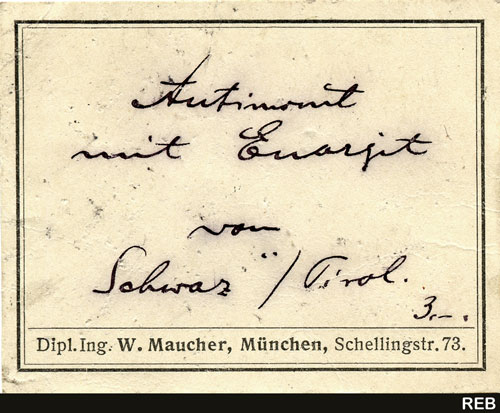 Antimonit
mit Enargit
von
Schwaz / Tirol.
3.-.
Dipl. Ing. W. Maucher, München, Schellingstr. 73.
REB